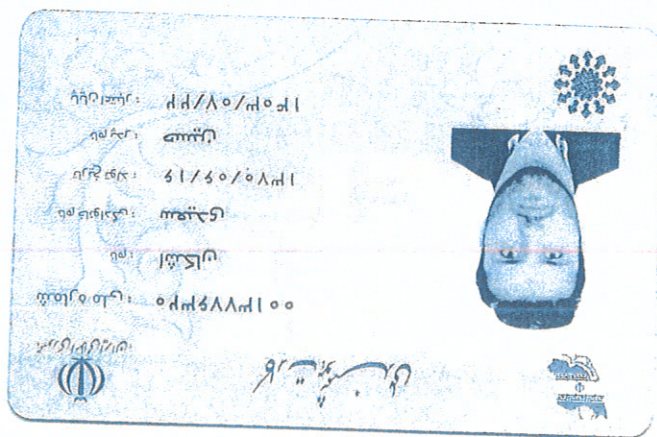 جمهوری اسلامی ایران
کارت هوشمند ملی
شماره ملی: ۰۰۱۳۷۷۶۳۲۰
نام: اشکان
نام خانوادگی: سعیدی
تاریخ تولد: ۱۳۷۰/۰۶/۱۶
نام پدر: حسین
پایان اعتبار: ۱۴۰۳/۰۷/۲۲